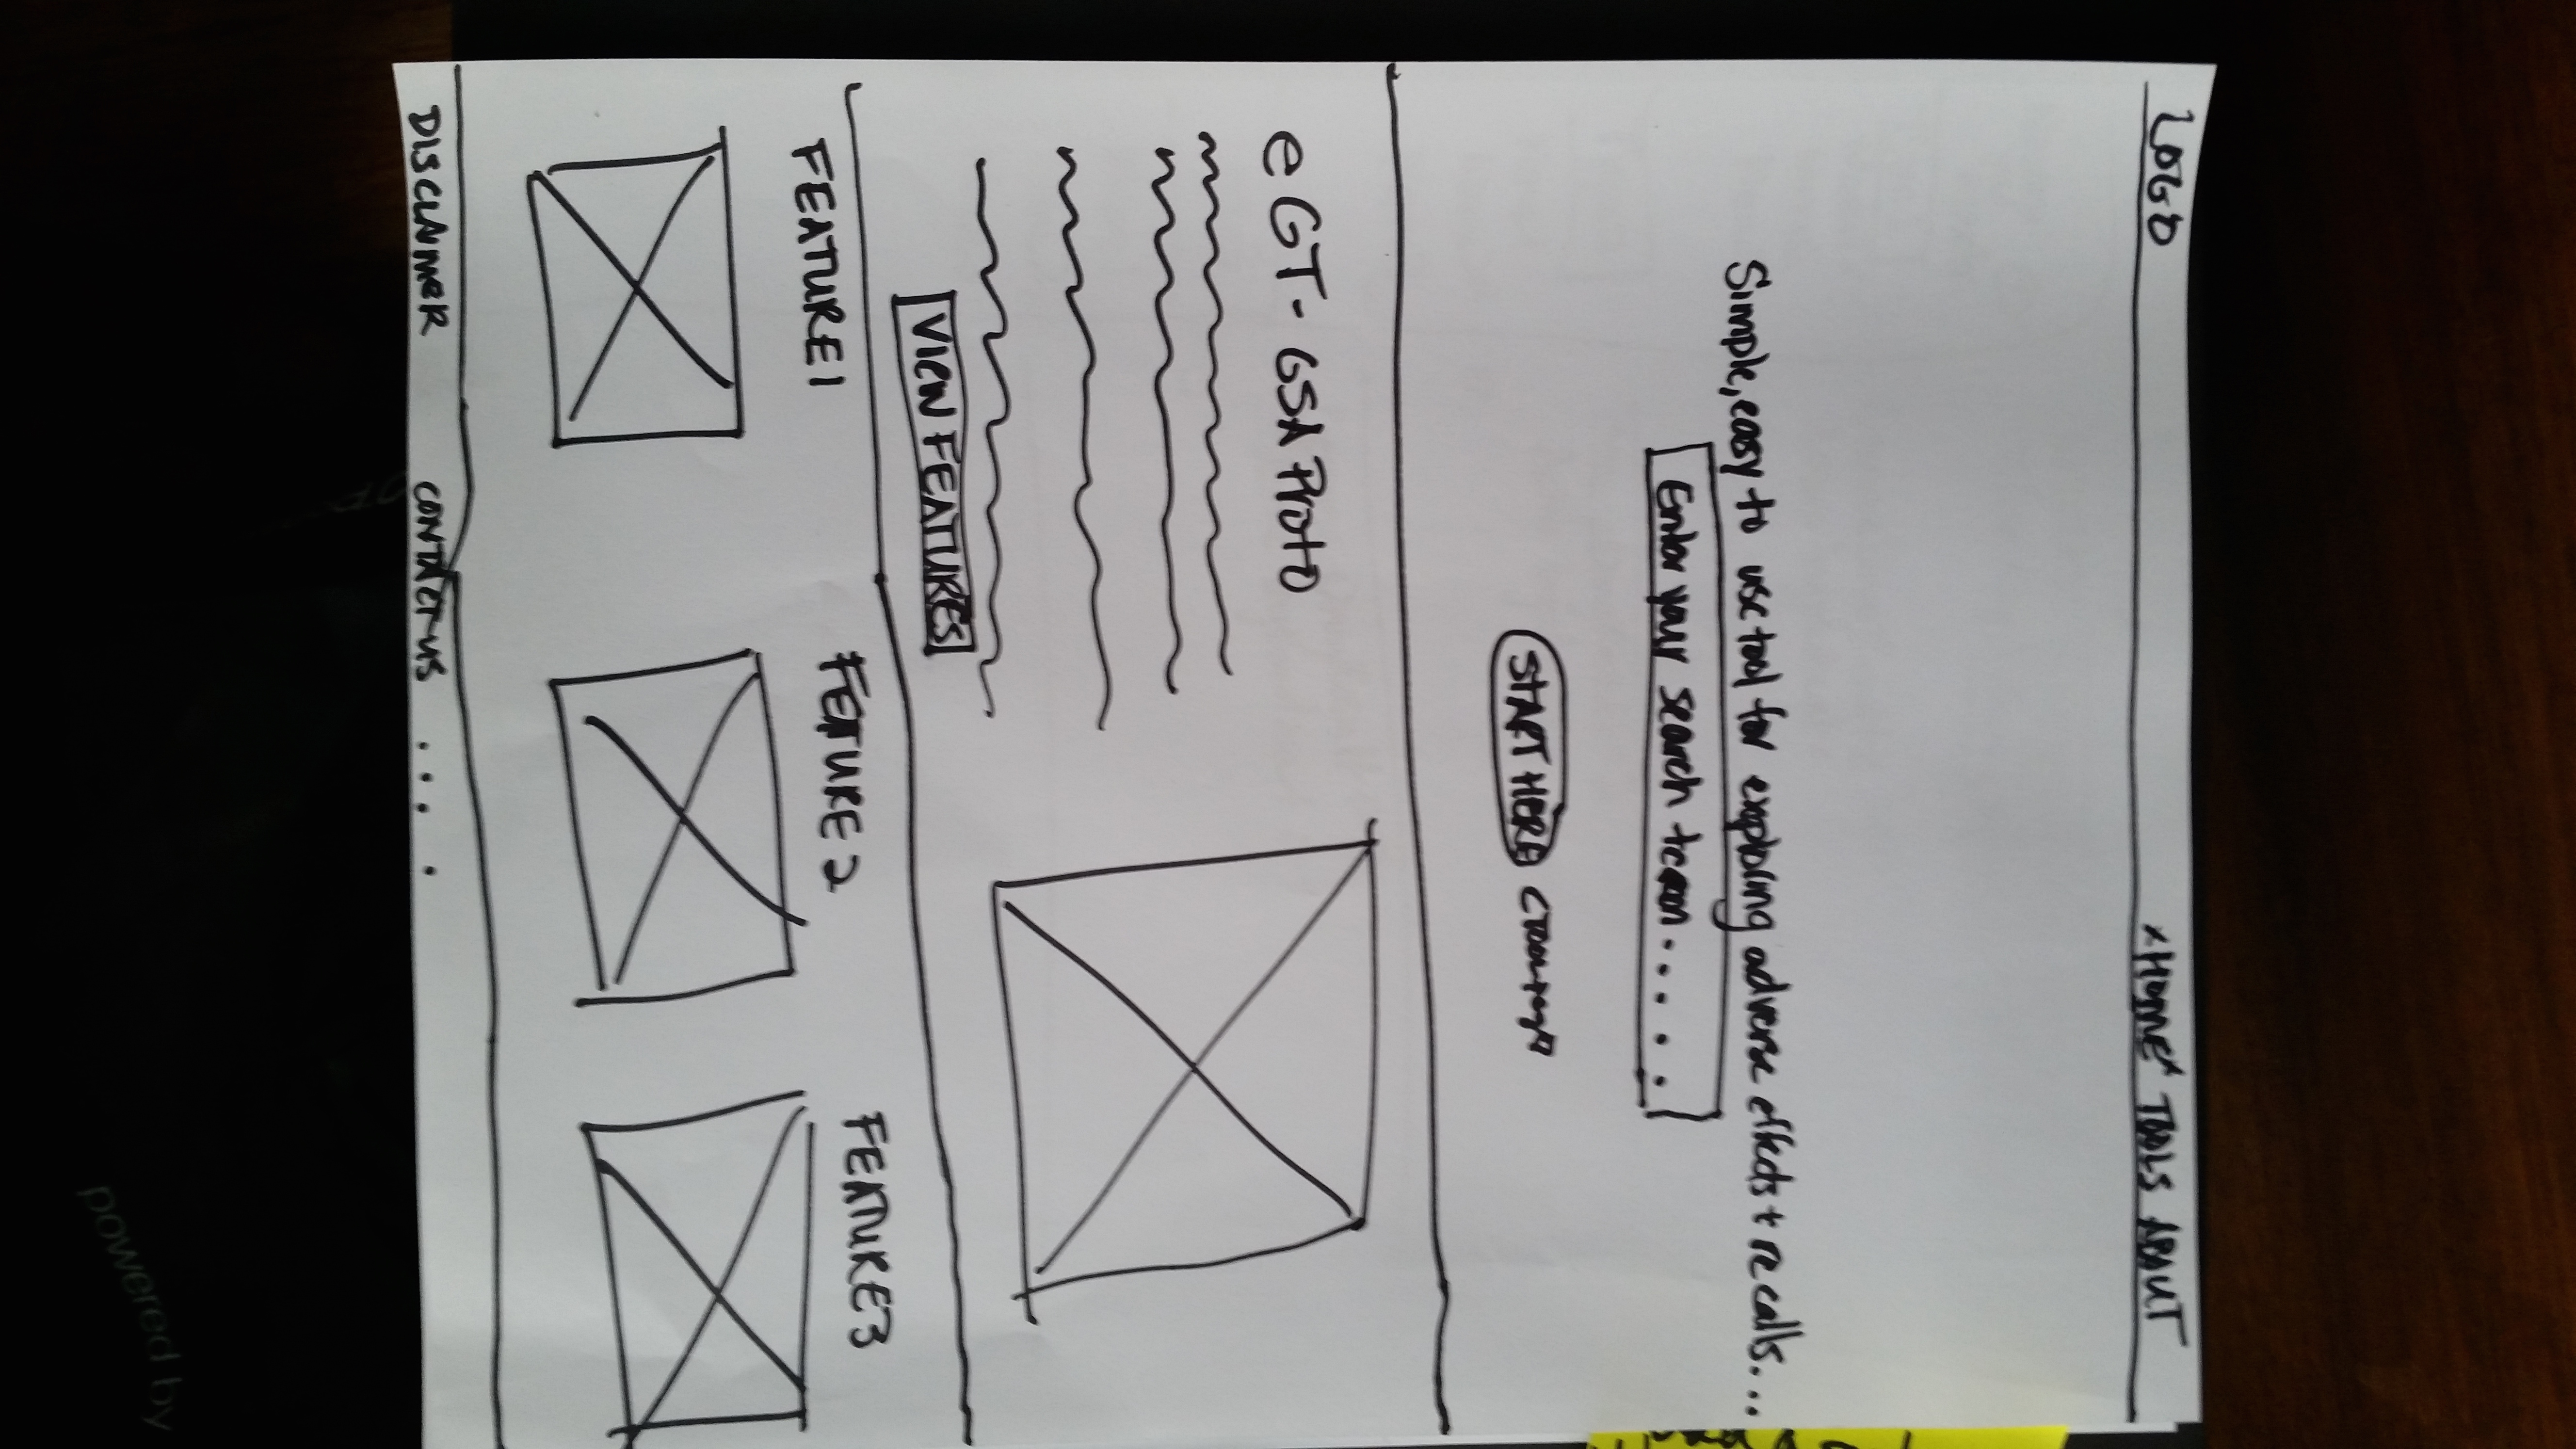 LOGO
×HOME× TOOLS ABOUT
Simple, easy to use tool for exploring adverse effects + recalls...
Enter your search team.....
START HERE
eGT-GSA Proto
VIEW FEATURES
FEATURE 1 FEATURE 2 FEATURE 3
DISCLAIMER CONTACT-US ....
powered by